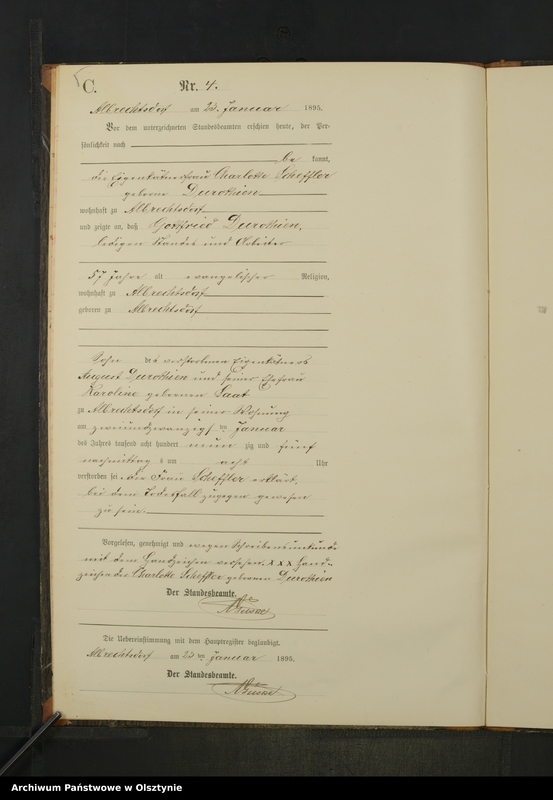 C.
Nr. 4.
Albrechtsdorf am 23. Januar 1895.
Vor dem unterzeichneten Standesbeamten erschien heute, der Per-
sönlichkeit nach
be kannt,
die Eigenkätnerfrau Charlotte Scheffler
geborne Durothien
wohnhaft zu Albrechtsdorf
und zeigte an, daß Gottfried Durothien,
ledigen Standes und Arbeiter
57 Jahre alt evangelischer Religion,
wohnhaft zu Albrechtsdorf
geboren zu Albrechtsdorf
Sohn des verstorbenen Eigenkätners
August Durothien und seiner Ehefrau
Karoline gebornen Saat
zu Albrechtsdorf in seiner Wohnung
am zweiundzwanzigsten Januar
des Jahres tausend acht hundert neun zig und fünf
nachmittags um acht Uhr
verstorben sei. die Frau Scheffler erklärt,
bei dem Todesfall zugegen gewesen
zu sein.
Vorgelesen, genehmigt und wegen Schreibensunkunde
mit dem Handzeichen versehen. x x x Hand-
zeichen der Charlotte Scheffler geborenen Durothien
Der Standesbeamte.
Die Uebereinstimmung mit dem Hauptregister beglaubigt.
Albrechtsdorf am 23 ten Januar 1895.
Der Standesbeamte.
Archiwum Państwowe w Olsztynie